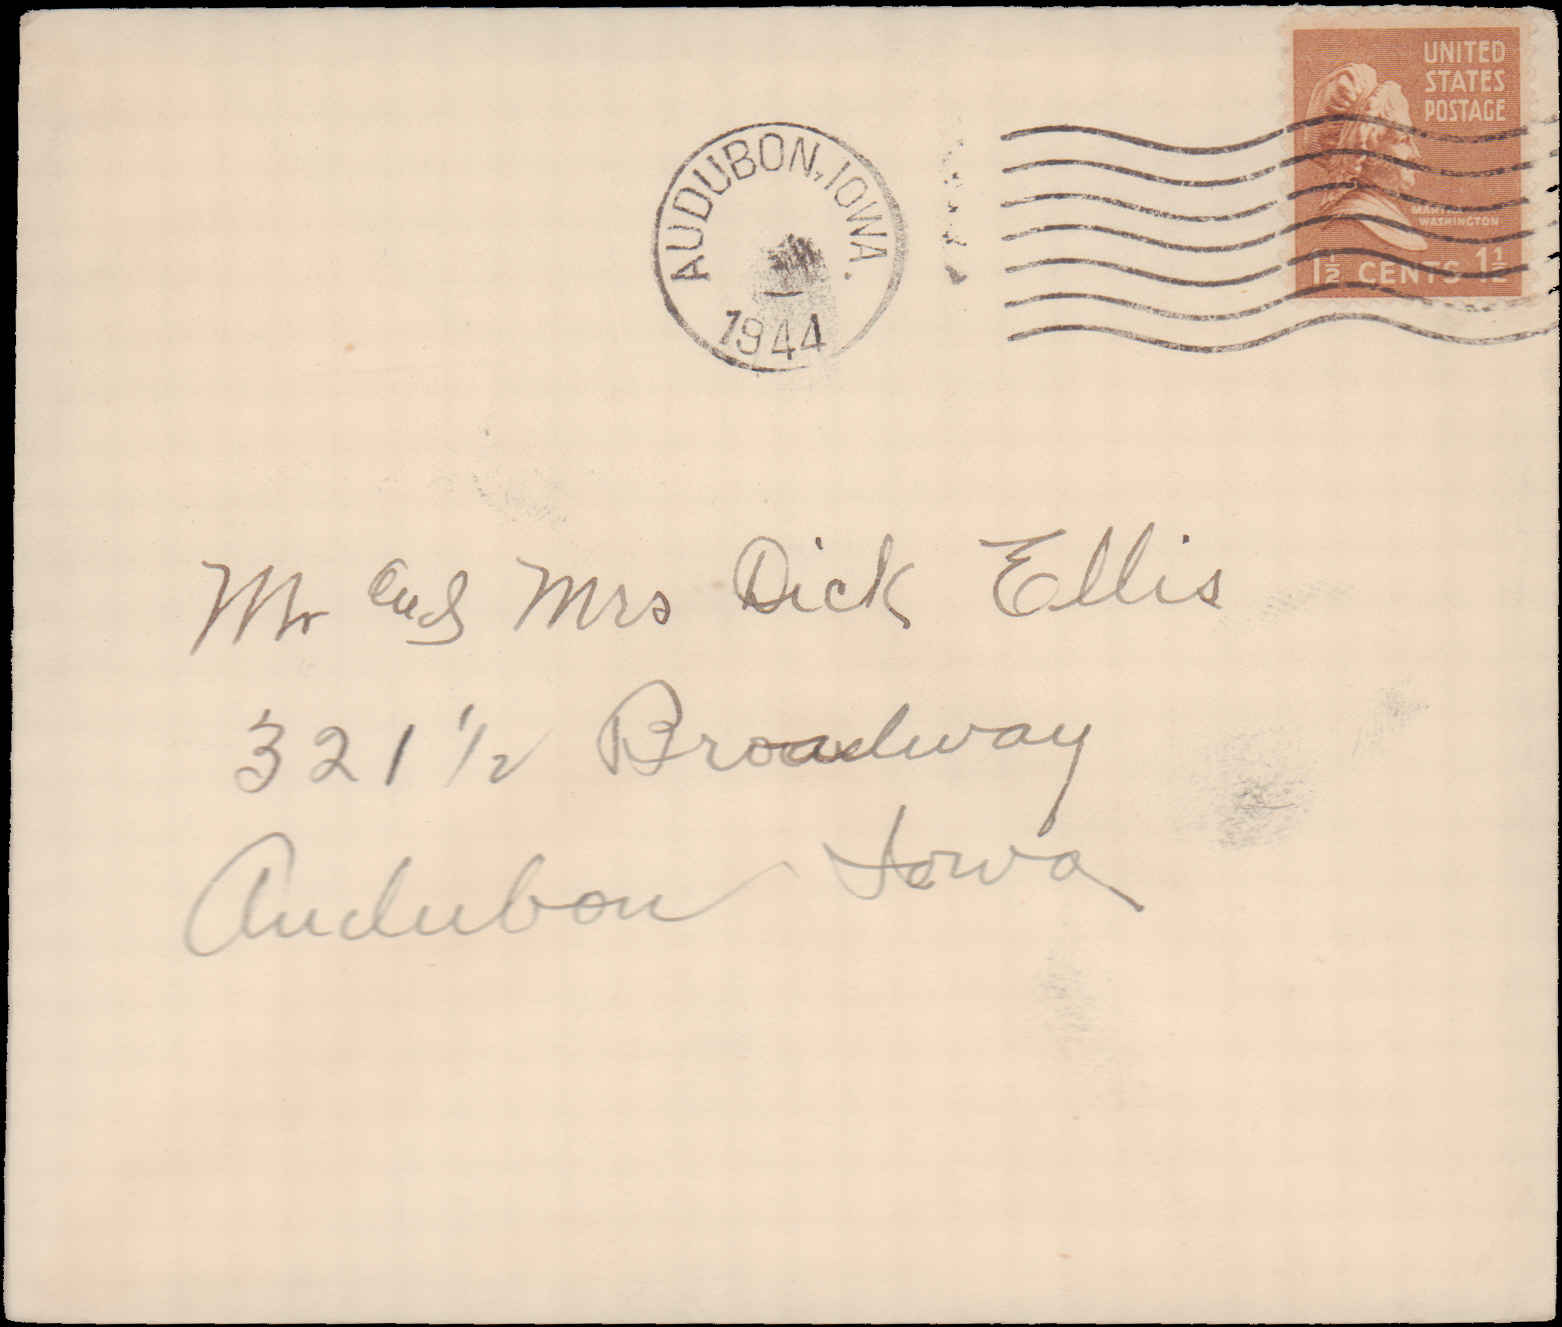 UNITED
STATES
POSTAGE
MARTHA
WASHINGTON
1½ CENTS 1½
AUDUBON, IOWA.
1944
Mr and Mrs Dick Ellis
321 1/2 Broadway
Audubon Iowa